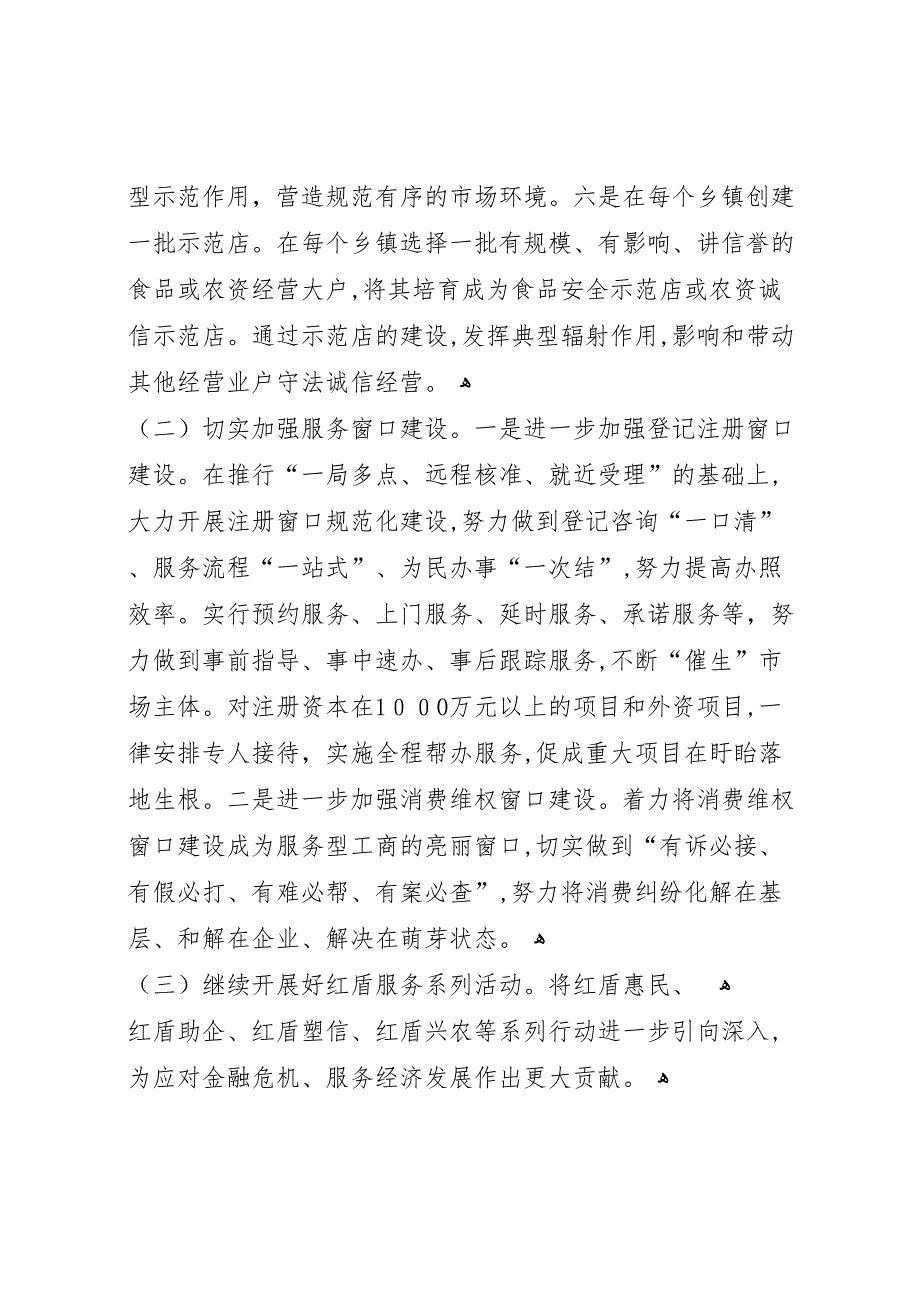 型示范作用，营造规范有序的市场环境。六是在每个乡镇创建
一批示范店。在每个乡镇选择一批有规模、有影响、讲信誉的
食品或农资经营大户,将其培育成为食品安全示范店或农资诚
信示范店。通过示范店的建设,发挥典型辐射作用,影响和带动
其他经营业户守法诚信经营。 ﻫ
（二）切实加强服务窗口建设。一是进一步加强登记注册窗口
建设。在推行“一局多点、远程核准、就近受理”的基础上，
大力开展注册窗口规范化建设,努力做到登记咨询“一口清”
、服务流程“一站式”、为民办事“一次结”,努力提高办照
效率。实行预约服务、上门服务、延时服务、承诺服务等，努
力做到事前指导、事中速办、事后跟踪服务,不断“催生”市
场主体。对注册资本在10 00万元以上的项目和外资项目,一
律安排专人接待，实施全程帮办服务,促成重大项目在盱眙落
地生根。二是进一步加强消费维权窗口建设。着力将消费维权
窗口建设成为服务型工商的亮丽窗口,切实做到“有诉必接、
有假必打、有难必帮、有案必查”,努力将消费纠纷化解在基
层、和解在企业、解决在萌芽状态。 ﻫ
（三）继续开展好红盾服务系列活动。将红盾惠民、 ﻫ
红盾助企、红盾塑信、红盾兴农等系列行动进一步引向深入，
为应对金融危机、服务经济发展作出更大贡献。 ﻫ